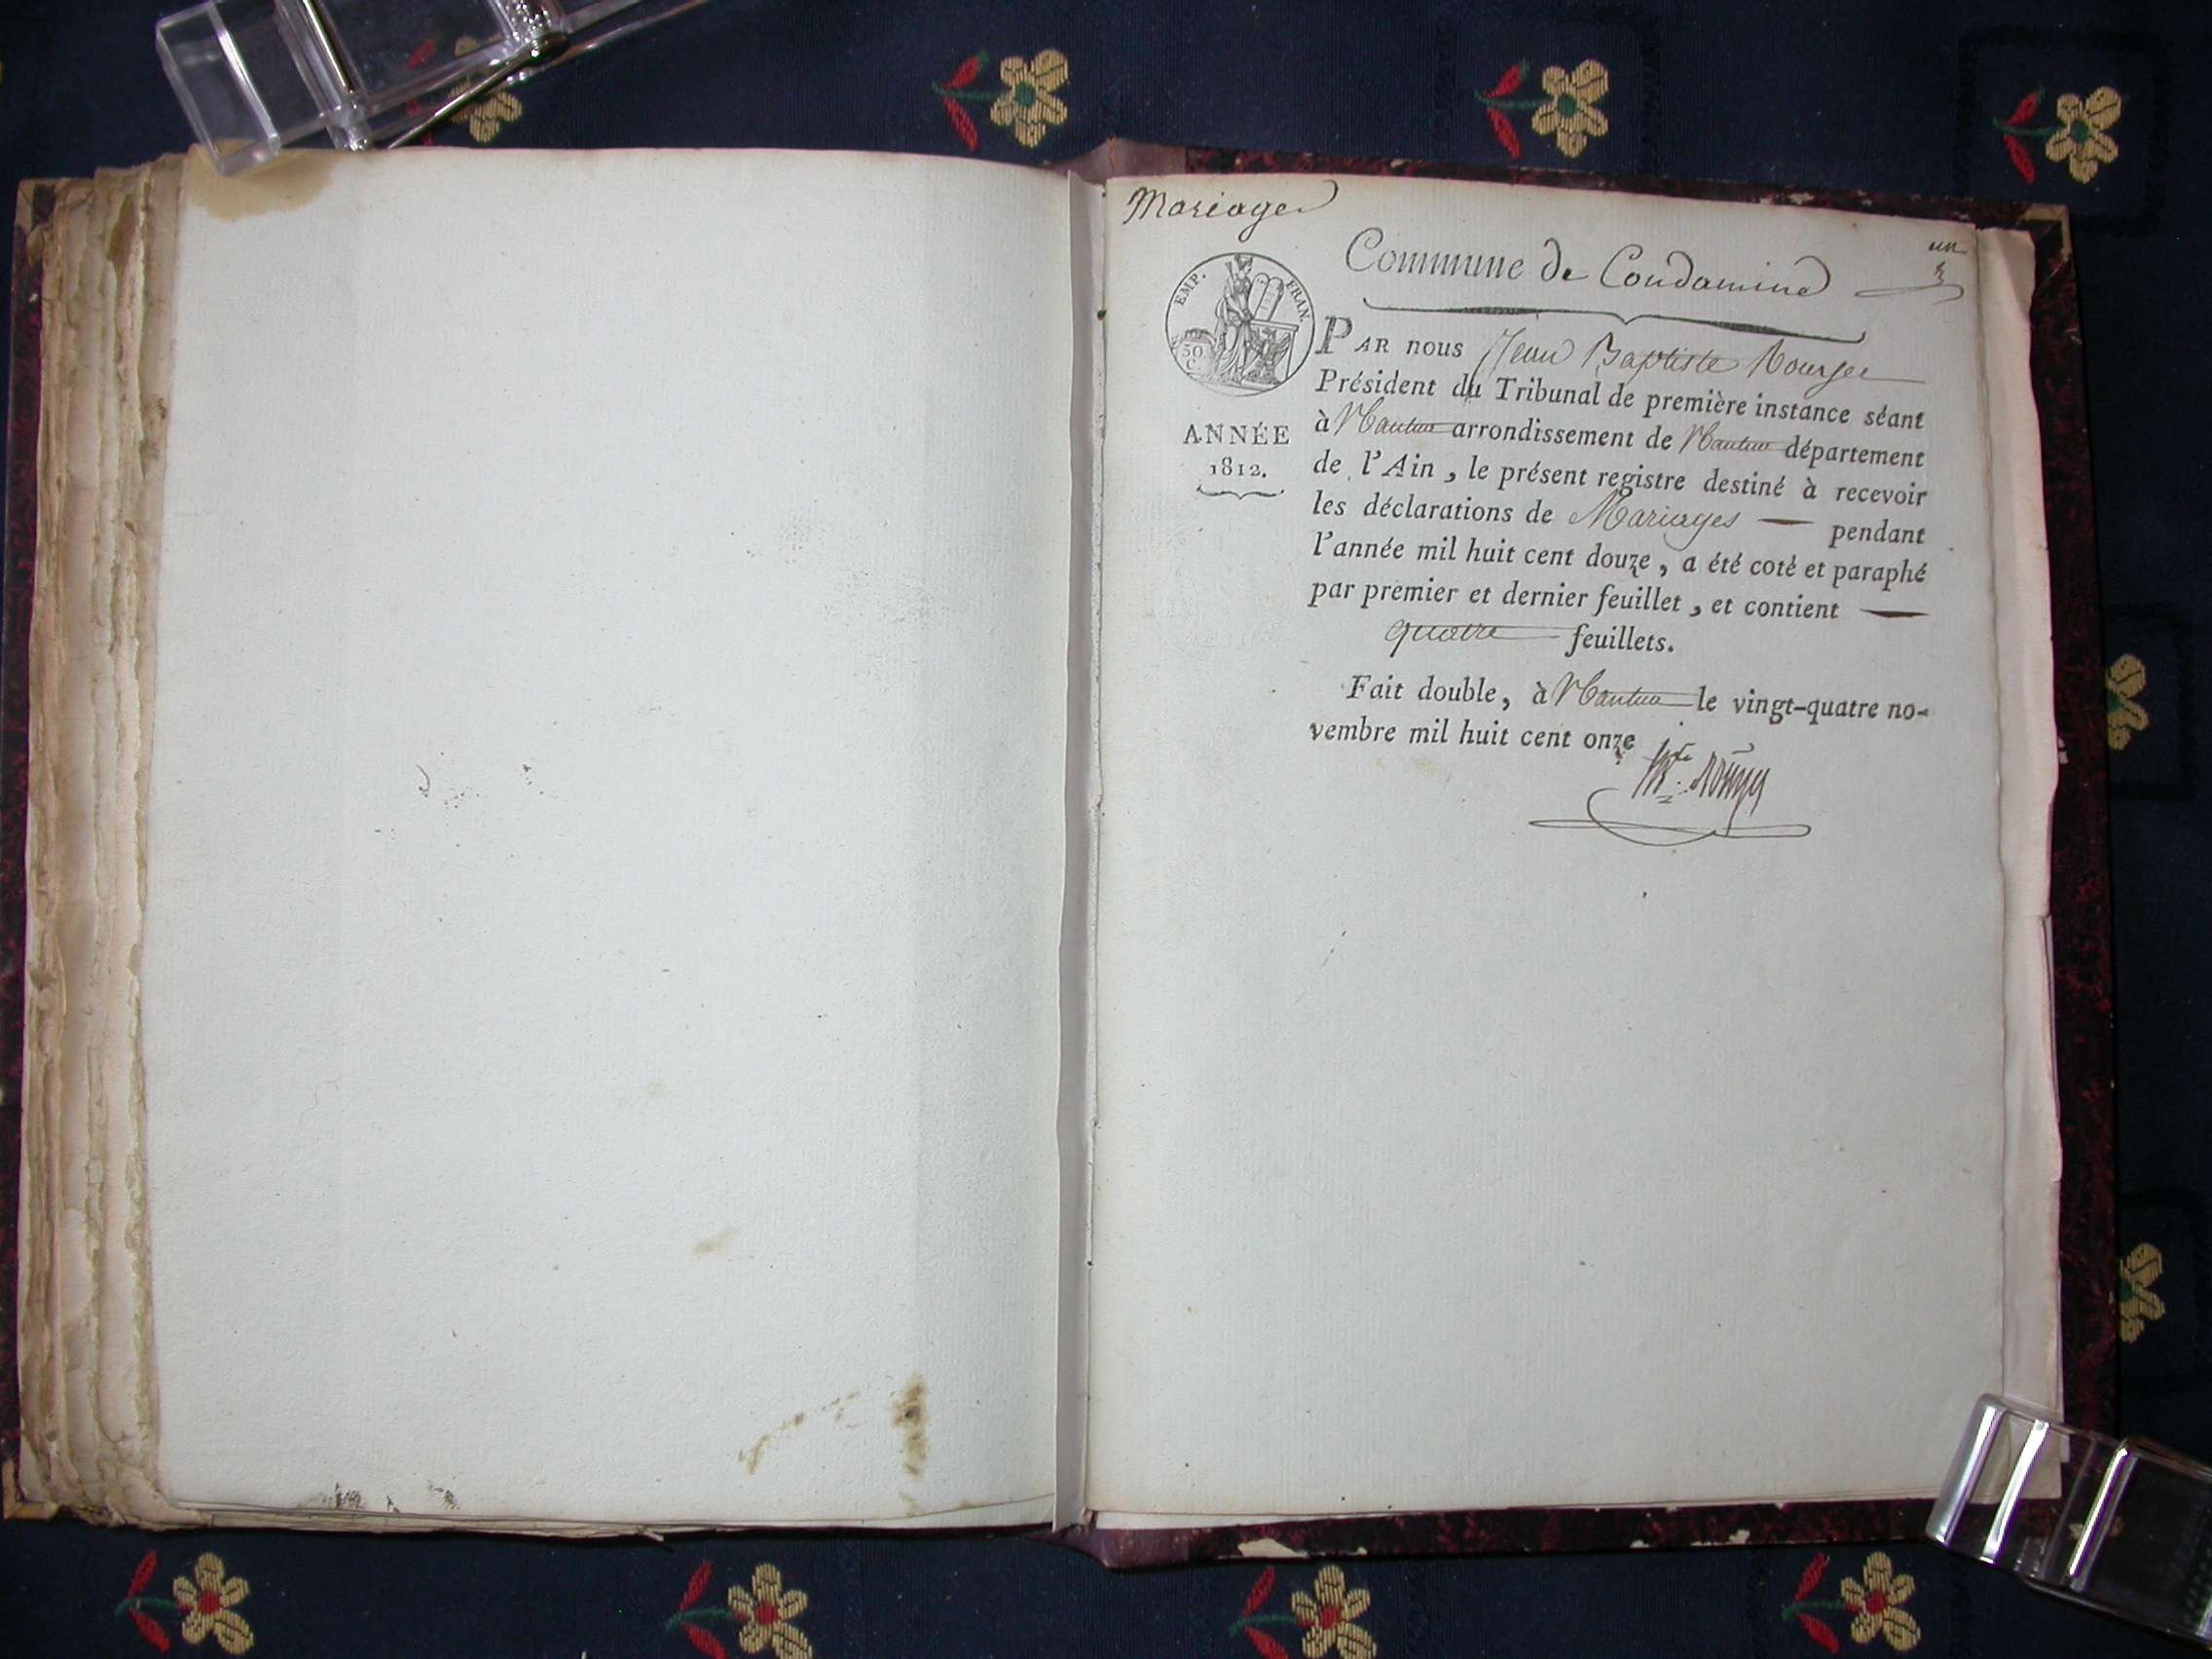 Mariages
un
Commune de Condamine
EMP. FRAN.
50
C.
PAR nous Jean Baptiste Rouyer
Président du Tribunal de première instance séant
à Nantua arrondissement de Nantua département
ANNÉE
1812.
de l'Ain, le présent registre destiné à recevoir
les déclarations de Mariages — pendant
l'année mil huit cent douze, a été coté et paraphé
par premier et dernier feuillet, et contient —
quatre feuillets.
Fait double, à Nantua le vingt-quatre no-
vembre mil huit cent onze